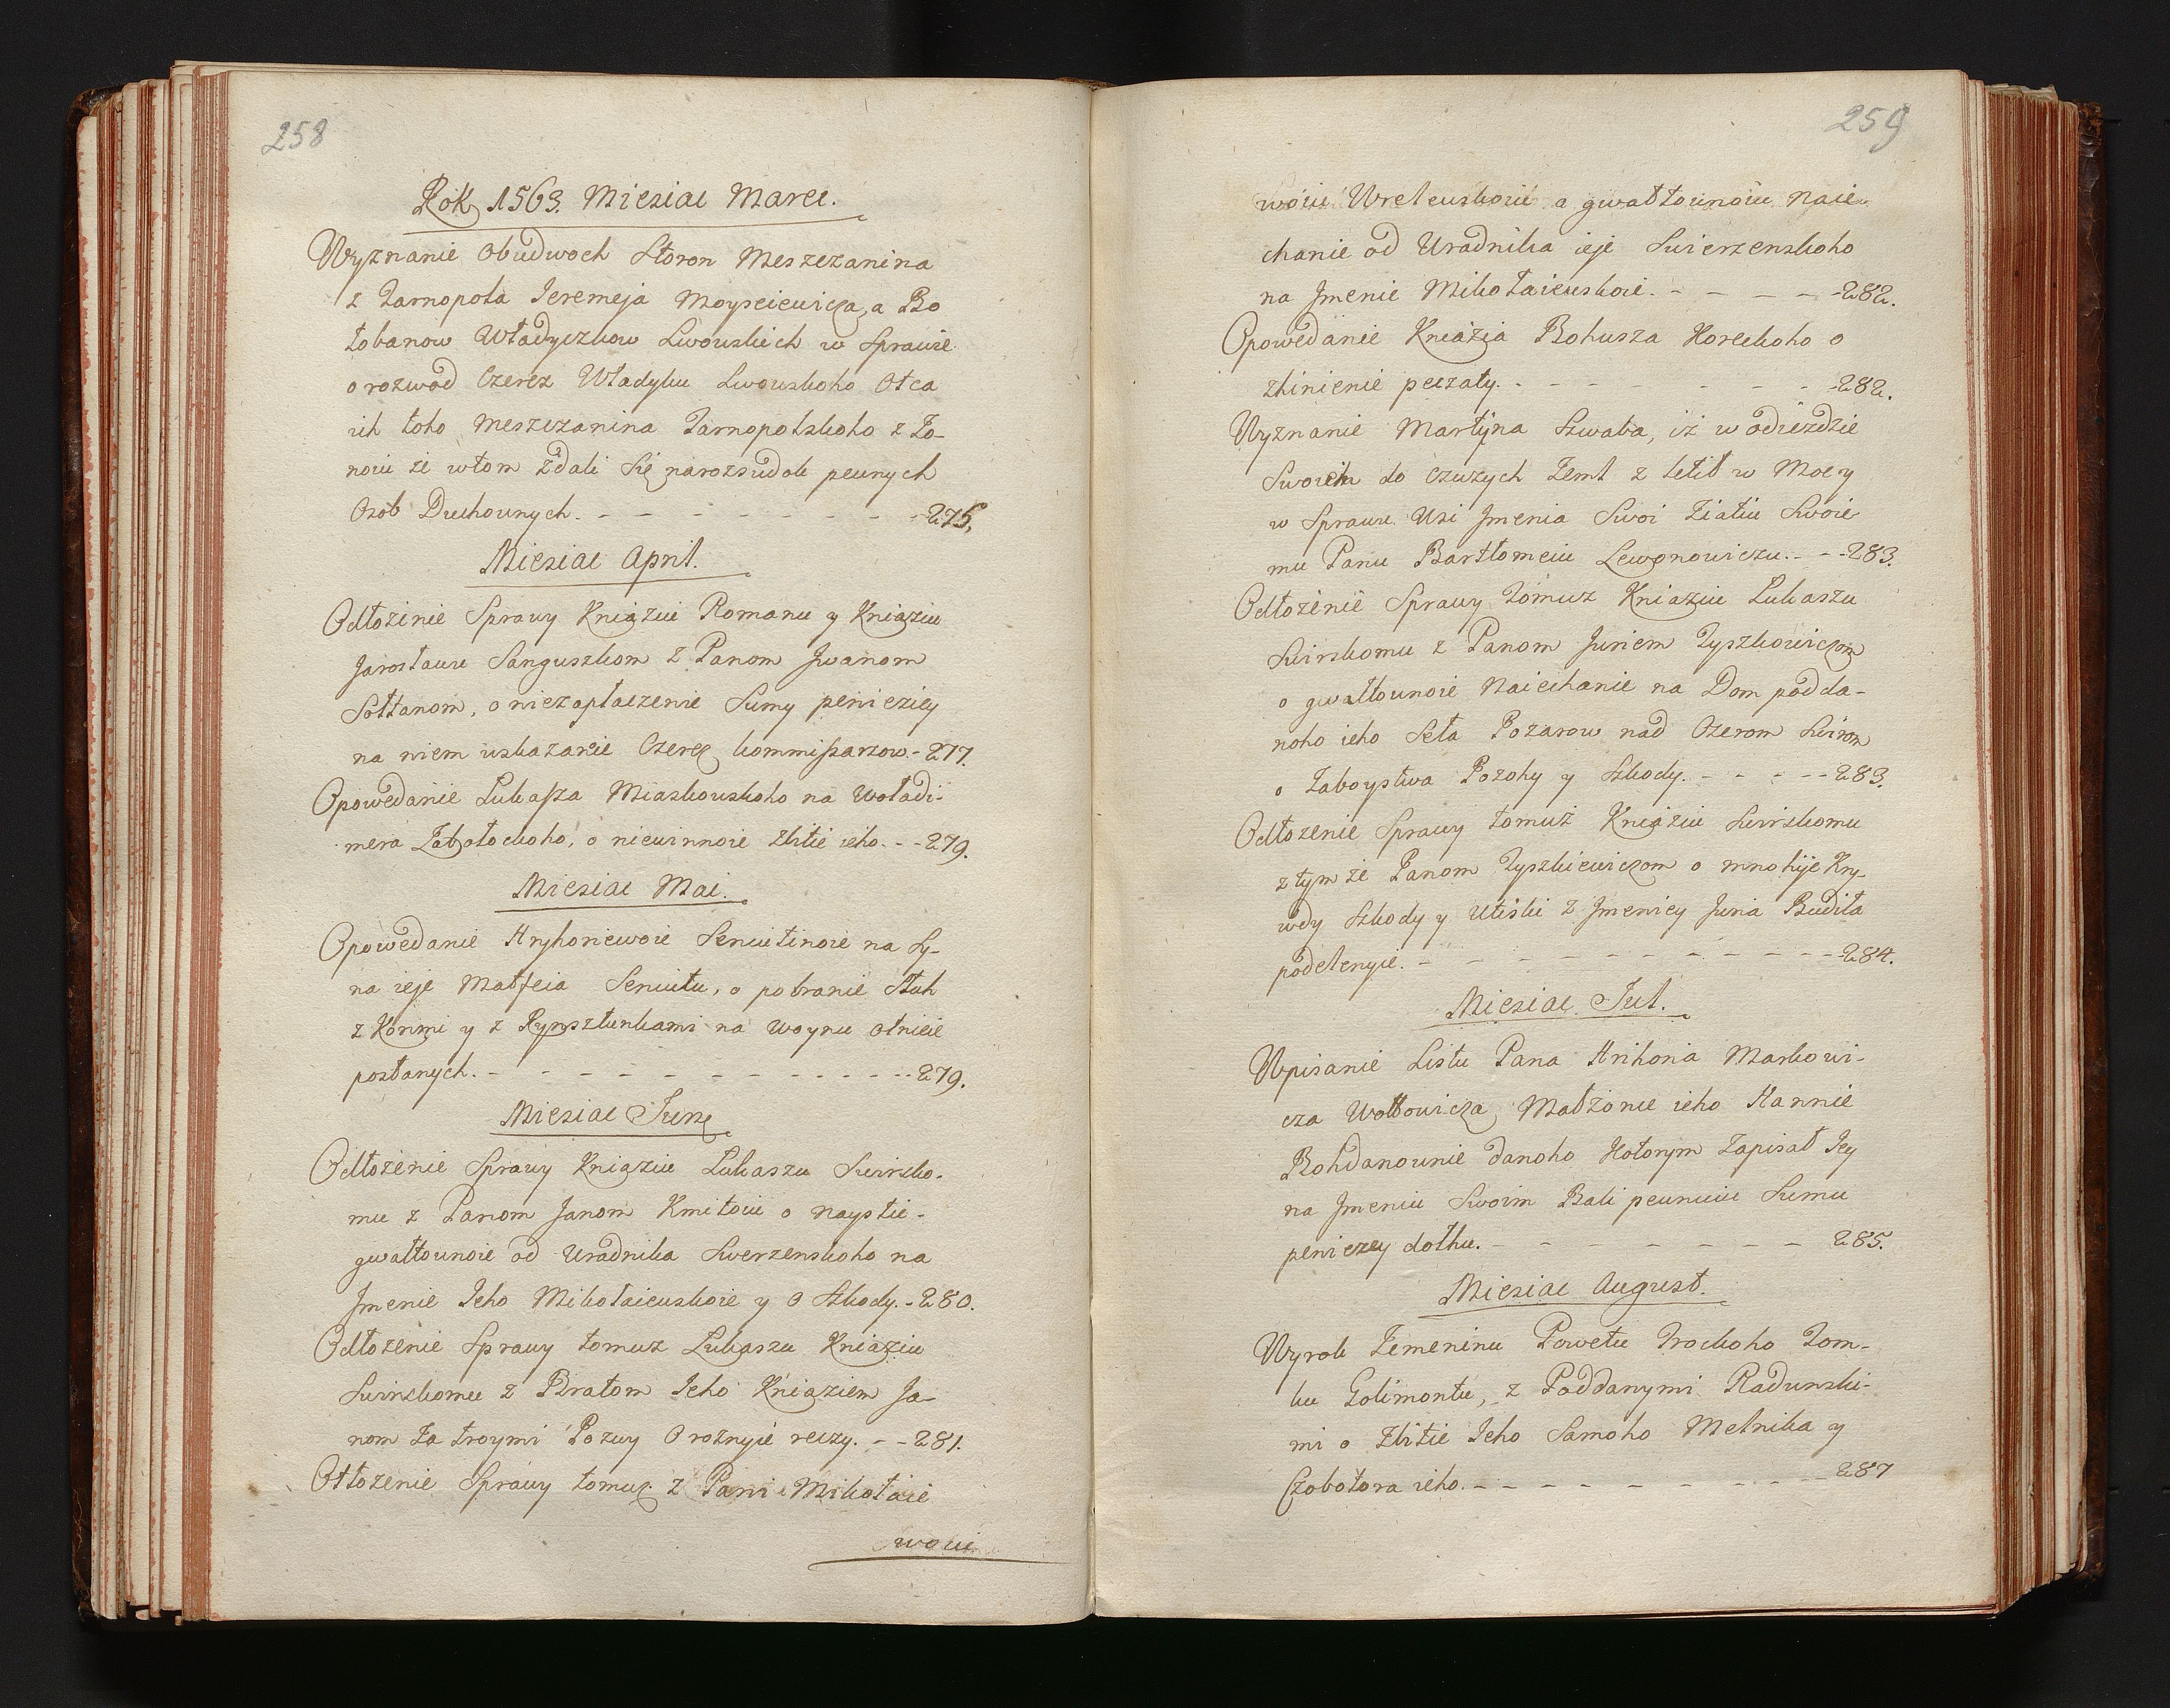 258
Rok 1563. Miesiac Marec.
Wyznanie Obudwoch Storon Meszczanina
z Tarnopola Jeremeja Moyseiewicza, a Bo
łobanow Władyczkow Lwowskich w Sprawie
o rozwod Czerez Władyku Lwowskoho Otca
ich toho Meszczanina Tarnopolskoho z Żo-
noiu że wtom zdali Się narozsudok pewnych
Osob Duchownych. - - - - - - - - 275.
Miesiac April.
Odłożenie Sprawy Kniaziu Romanu y Kniaziu
Jarosławu Sanguszkom z Panom Jwanom
Sołtanom, o niezapłaczenie Sumy peniezięy
na niem uskazanie Czerez kommissarzow. - 277.
Opowedanie Lukasza Miaskowskoho na Woładi-
mera Zabołockoho, o niewinnoie zbitie ieho. - - 279.
Miesiac Mai.
Opowedanie Hryhoriewoie Seniutinoie na Sy-
na ieje Matfeia Seniutu, o pobranie Słuh
z Konmi y z Rynsztunkami na Woynu otnieie
posłanych. - - - - - - - - - - - - 279.
Miesiac Juny
Odłożenie Sprawy Kniaziu Lukaszu Swirsko-
mu z Panom Janom Kmitoiu o nayştie-
gwałtownoie od Uradnika Swerzenskoho na
Jmenie Jeho Mikołaiewskoie y o Szkody. - 280.
Odłożenie Sprawy tomuz Lukaszu Kniaziu
Swirskomu z Bratom Jeho Kniaziem Ja-
nom Za troymi Pozwy O roznyie reczy. - - 281.
Otłożenie Sprawy tomuz z Pani Mikołaie
woiu
259
woiu Wretewskoiu a gwałtownoiu Naie-
chanie od Uradnika ieje Swierzenskoho
na Jmenie Mikołaiewskoie. - - - - - 282.
Opowedanie Kniazia Bohusza Koreckoho o
zhinienie peczaty. - - - - - - - - 282.
Wyznanie Martyna Szwaba, iż w odiezdzie
Swoich do Czużych Zeml z letił w Mocy
w Sprawu Usi Jmenia Swoi Ziatiu Swoie-
mu Panu Bartłomeiu Lewonowiczu. - - - 283.
Odłożenie Sprawy Tomuz Kniaziu Lukaszu
Swirskomu z Panom Juriem Tyszkowiczom
o gwałtownoie Naiechanie na Dom podda-
noho ieho Seła Pożarow nad Ozerom Swirom
o Zaboystwa Pozohy y Szkody. - - - - - 283.
Odłożenie Sprawy tomuż Kniaziu Swirskomu
z tym że Panom Tyszkiewiczom o mnohije Kry-
wdy Szkody y Utiski z Jmenięy Juria Budiła
podelenyie. - - - - - - - - - - - 284.
Miesiac Jul.
Wpisanie Listu Pana Hrihoria Markowi-
cza Wołłowicza Małżonie ieho Hannie
Bohdanownie danoho Kotorym Zapisał Jey
na Jmeniu Swoim Bali pewnuiu Sumu
peniezey dołhu. - - - - - - - 285.
Miesiac August.
Wyrok Zemeninu Powetu Trockoho Tom-
ku Golimontu, z Poddanymi Radunski-
mi o Zbitie Jeho Samoho Melnika y
Czobotora ieho. - - - - - - - - - 287